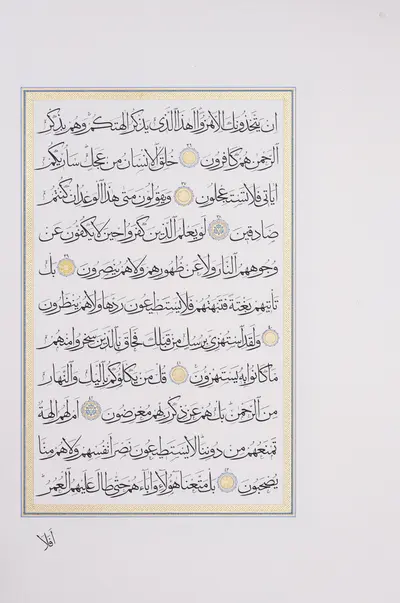 ان يتخذونك الا هزوا اهذا الذى يذكر الهتكم وهم بذكر
الرحمن هم كافرون خلق الانسان من عجل ساريكم
اياتى فلا تستعجلون ويقولون متى هذا الوعد ان كنتم
صادقين لو يعلم الذين كفروا حين لا يكفون عن
وجوههم النار ولا عن ظهورهم ولا هم ينصرون بل
تأتيهم بغتة فتبهتهم فلا يستطيعون ردها ولا هم ينظرون
ولقد استهزئ برسل من قبلك فحاق بالذين سخروا منهم
ما كانوا به يستهزؤن قل من يكلؤكم بالليل والنهار
من الرحمن بل هم عن ذكر ربهم معرضون ام لهم الهة
تمنعهم من دوننا لا يستطيعون نصر انفسهم ولا هم منا
يصحبون بل متعنا هؤلاء واباءهم حتى طال عليهم العمر
افلا